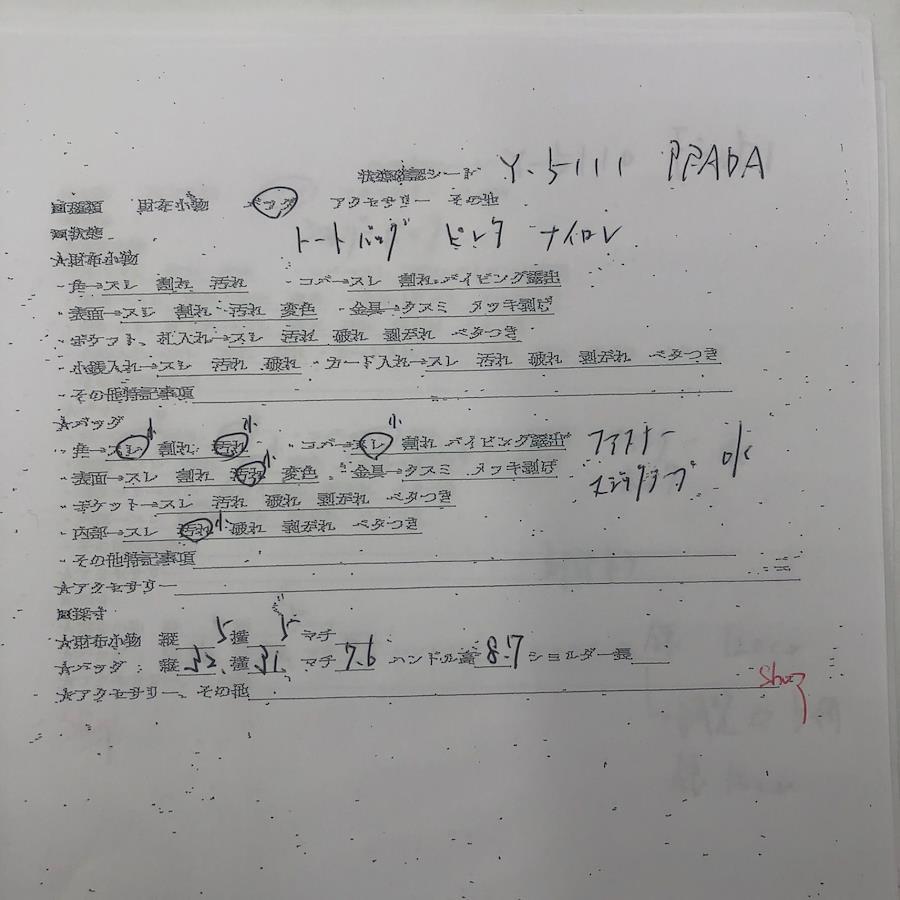 状態確認シート Y-5111 PRADA
□種類 財布小物 バッグ アクセサリー その他
□状態 トートバッグ ピンク ナイロン
★財布小物
・角→スレ 割れ 汚れ ・コバ→スレ 割れ パイピング露出
・表面→スレ 割れ 汚れ 変色 ・金具→クスミ メッキ剥げ
・ポケット、札入れ→スレ 汚れ 破れ 剥がれ ベタつき
・小銭入れ→スレ 汚れ 破れ ・カード入れ→スレ 汚れ 破れ 剥がれ ベタつき
・その他特記事項
★バッグ 小 小 小
・角→スレ 割れ 汚れ ・コバ→スレ 割れ パイピング露出 ファスナー
・表面→スレ 割れ 汚れ 変色 ・金具→クスミ メッキ剥げ 小 OK
・ポケット→スレ 汚れ 破れ 剥がれ ベタつき
・内部→スレ 汚れ 破れ 剥がれ ベタつき 小
・その他特記事項
★アクセサリー
□採寸
★財布小物 縦 横 マチ 5 5
★バッグ：縦 32 横 31 マチ 7.6 ハンドル高 8.7 ショルダー長
★アクセサリー、その他